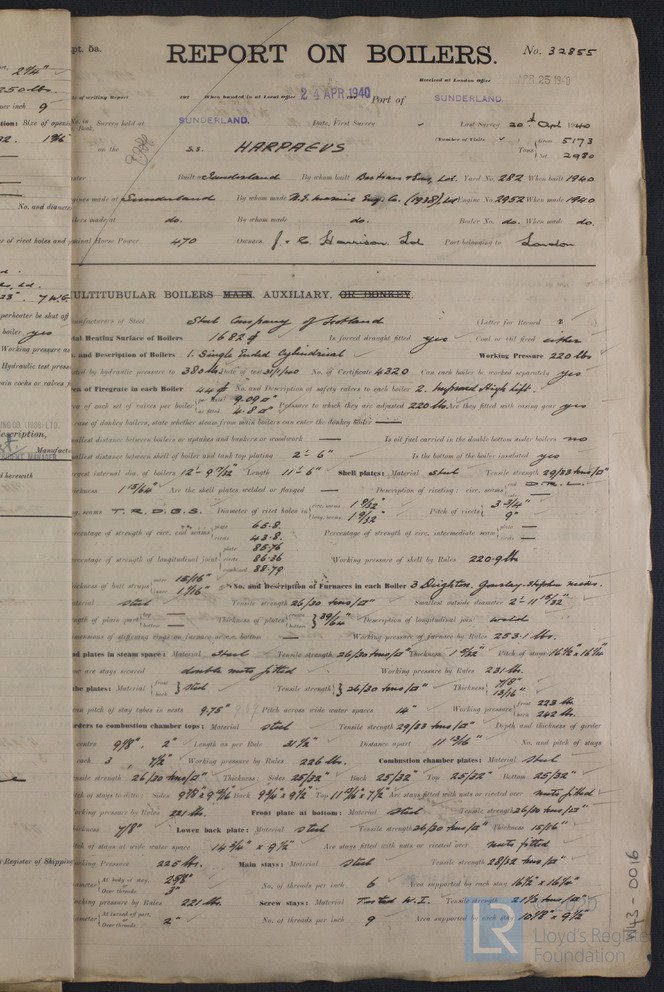 pt. 5a.
REPORT ON BOILERS.
No. 32855
Received at London Office APR 25 1940
of writing Report 194 When handed in at Local Office 24 APR 1940 Port of SUNDERLAND.
No. in Survey held at SUNDERLAND. Date, First Survey Last Survey 20th April 1940
Book. (Number of Visits Gross 5173
on the S.S. HARPAGUS Tons
Net 2980
Built Sunderland By whom built Bartram & Sons, Ld. Yard No. 282 When built 1940
made at Sunderland By whom made N.E. Marine Eng. Co. (1938), Ld Engine No. 2952 When made 1940
made at do. By whom made do. Boiler No. do. When made do.
Horse Power 470 Owners J. & C. Harrison. Ld Port belonging to London
MULTITUBULAR BOILERS MAIN, AUXILIARY, OR DONKEY.
of Steel Steel Company of Scotland (Letter for Record )
Heating Surface of Boilers 1682 Is forced draught fitted yes Coal or Oil fired either
and Description of Boilers 1. Single Ended Cylindrical Working Pressure 220 lbs
by hydraulic pressure to 380 lbs Date of test No. of Certificate 4320 Can each boiler be worked separately yes
of Firegrate in each Boiler 44 No. and Description of safety valves to each boiler 2. Improved High Lift.
of each set of valves per boiler 9.09
as fitted 4.8 Pressure to which they are adjusted 220 lbs. Are they fitted with easing gear yes
case of donkey boilers, state whether steam from main boilers can enter the donkey boiler
distance between boilers or uptakes and bunkers or woodwork Is oil fuel carried in the double bottom under boilers no
distance between shell of boiler and tank top plating 2'-6" Is the bottom of the boiler insulated yes
internal dia. of boilers 12'-9 7/32" Length 11'-6" Shell plates: Material steel Tensile strength 29/33 tons/□"
1 15/64" Are the shell plates welded or flanged Description of riveting: circ. seams end D.R.L.
seams T.R.D.B.S. Diameter of rivet holes in circ. seams 1 9/32"
long. seams 1 9/32" Pitch of rivets 3 3/4"
9"
Percentage of strength of circ. end seams plate 65.8
rivets 43.8 Percentage of strength of circ. intermediate seam plate
rivets
Percentage of strength of longitudinal joint plate 85.76
rivets 86.36
combined 88.79 Working pressure of shell by Rules 220.9 lbs
Thickness of butt straps outer 15/16"
inner 1 1/16" No. and Description of Furnaces in each Boiler 3 Deighton, Gourlay-Stephen necks.
Material steel Tensile strength 26/30 tons/□" Smallest outside diameter 2'-11 15/32"
of plain part top
bottom Thickness of plates crown
bottom 39/64" Description of longitudinal join weld
of stiffening rings on furnace or c.c. bottom Working pressure of furnace by Rules 253.1 lbs.
plates in steam space: Material steel Tensile strength 26/30 tons/□" Thickness 1 5/32" Pitch of stays 16 1/2" x 16 1/2"
are stays secured double nuts fitted Working pressure by Rules 231 lbs.
plates: Material front
back steel Tensile strength 26/30 tons/□" Thickness 7/8"
13/16"
pitch of stay tubes in nests 9.75" Pitch across wide water spaces 14" Working pressure front 223 lbs
back 242 lbs.
Girders to combustion chamber tops: Material steel Tensile strength 29/33 tons/□" Depth and thickness of girder
centre 9 7/8". 2" Length as per Rule 31 1/2" Distance apart 11 13/16" No. and pitch of stays
each 3, 7 1/2" Working pressure by Rules 226 lbs. Combustion chamber plates: Material steel
strength 26/30 tons/□" Thickness: Sides 25/32" Back 25/32" Top 25/32" Bottom 25/32"
Pitch of stays to ditto: Sides Back 9 3/4" x 9 1/2" Top Are stays fitted with nuts or riveted over nuts fitted
Working pressure by Rules 221 lbs. Front plate at bottom: Material steel Tensile strength 26/30 tons/□"
Thickness 7/8" Lower back plate: Material steel Tensile strength 26/30 tons/□" Thickness 15/16"
of stays at wide water space Are stays fitted with nuts or riveted over nuts fitted
Working Pressure 225 lbs. Main stays: Material steel Tensile strength 28/32 tons/□"
Diameter At body of stay, 2 7/8"
or
Over threads 3" No. of threads per inch 6 Area supported by each stay 16 1/2" x 16 1/2"
Working pressure by Rules 221 lbs. Screw stays: Material Tested W.I. Tensile strength 21 1/2 tons/□"
Diameter At turned off part,
or
Over threads 2" No. of threads per inch 9 Area supported by each stay 10 1/8" x 9 1/2"
W43-0016
© 2020
LR Lloyd's Register
Foundation